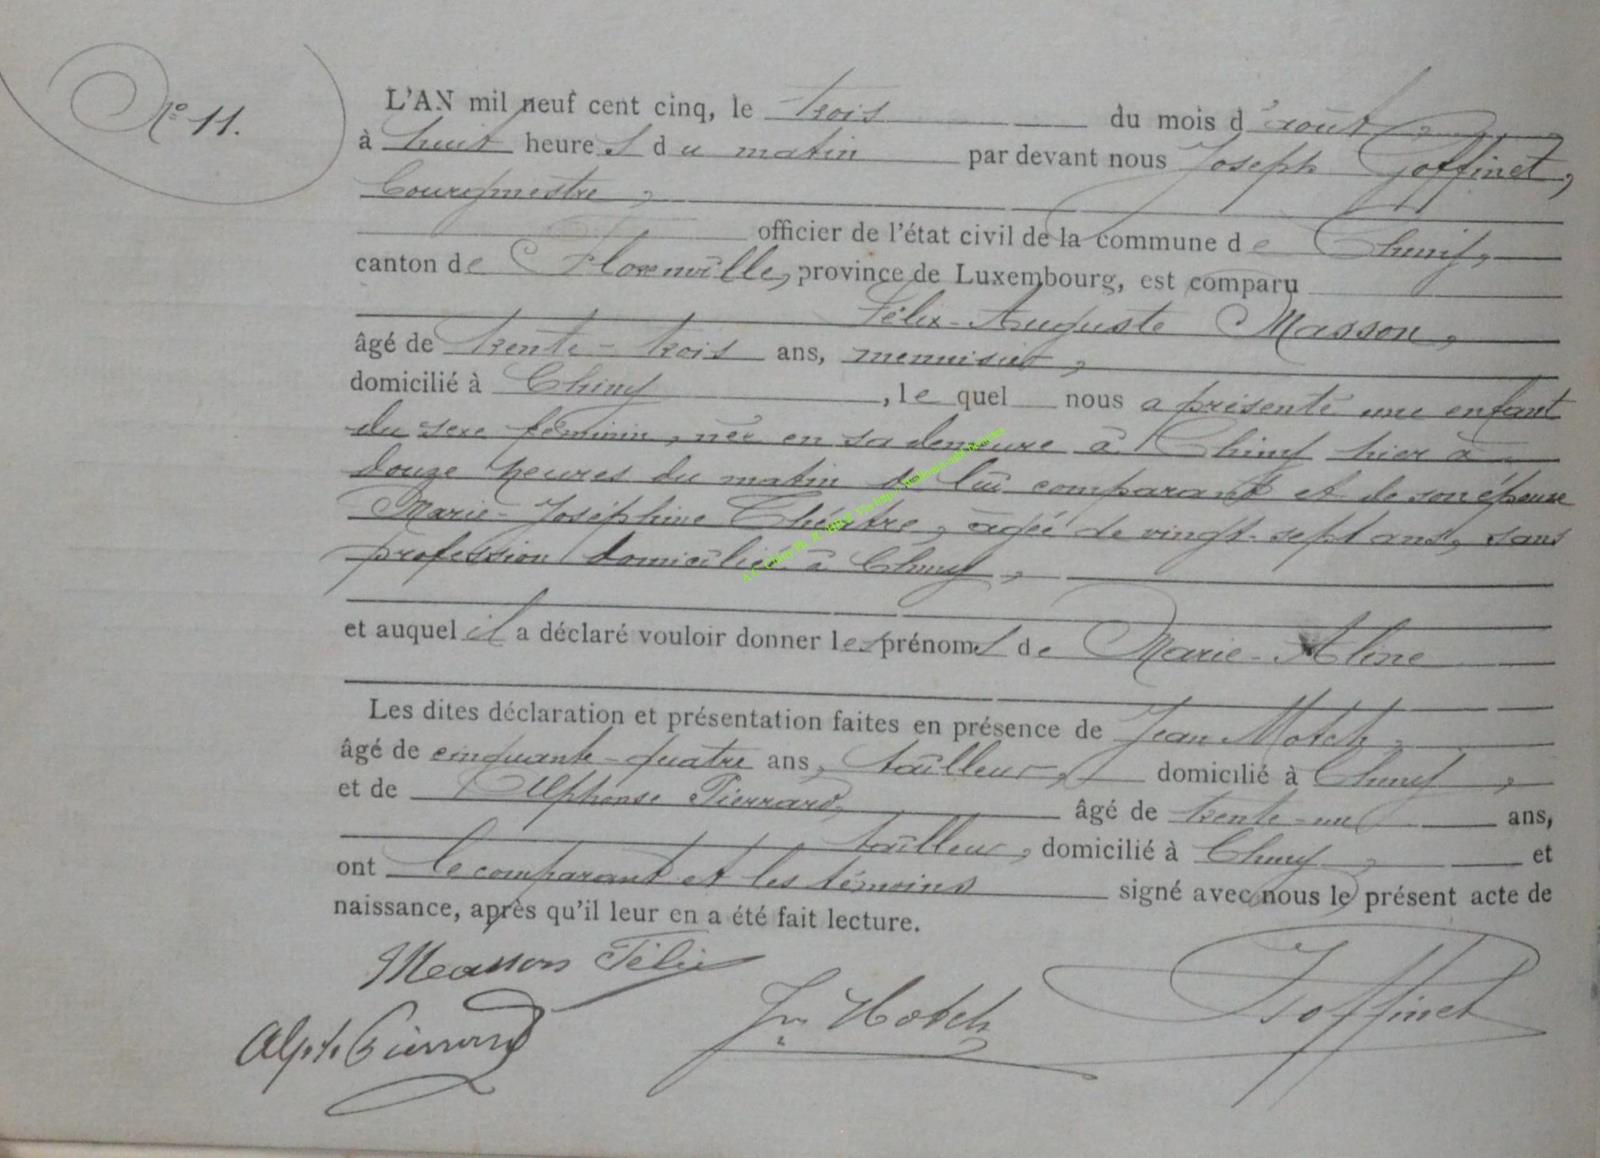 N° 11.
L'AN mil neuf cent cinq, le trois du mois d'août
à huit heures du matin par devant nous Joseph Goffinet,
bourgmestre,
officier de l'état civil de la commune de Chiny,
canton de Florenville, province de Luxembourg, est comparu
Félix-Auguste Masson,
âgé de trente-trois ans, menuisier,
domicilié à Chiny, le quel nous a présenté une enfant
du sexe féminin, née en sa demeure à Chiny hier à
douze heures du matin de lui comparant et de son épouse
Marie-Joséphine Théatre, agée de vingt-sept ans, sans
profession domiciliée à Chiny,
et auquel il a déclaré vouloir donner les prénoms de Marie-Aline
Les dites déclaration et présentation faites en présence de Jean Hotch,
âgé de cinquante-quatre ans, tailleur, domicilié à Chiny,
et de Alphonse Pierrard, âgé de trente-un ans,
tailleur, domicilié à Chiny, et
ont le comparant et les témoins signé avec nous le présent acte de
naissance, après qu'il leur en a été fait lecture.
Masson Félix
Jn Hotch
JGoffinet
Alph Pierrard